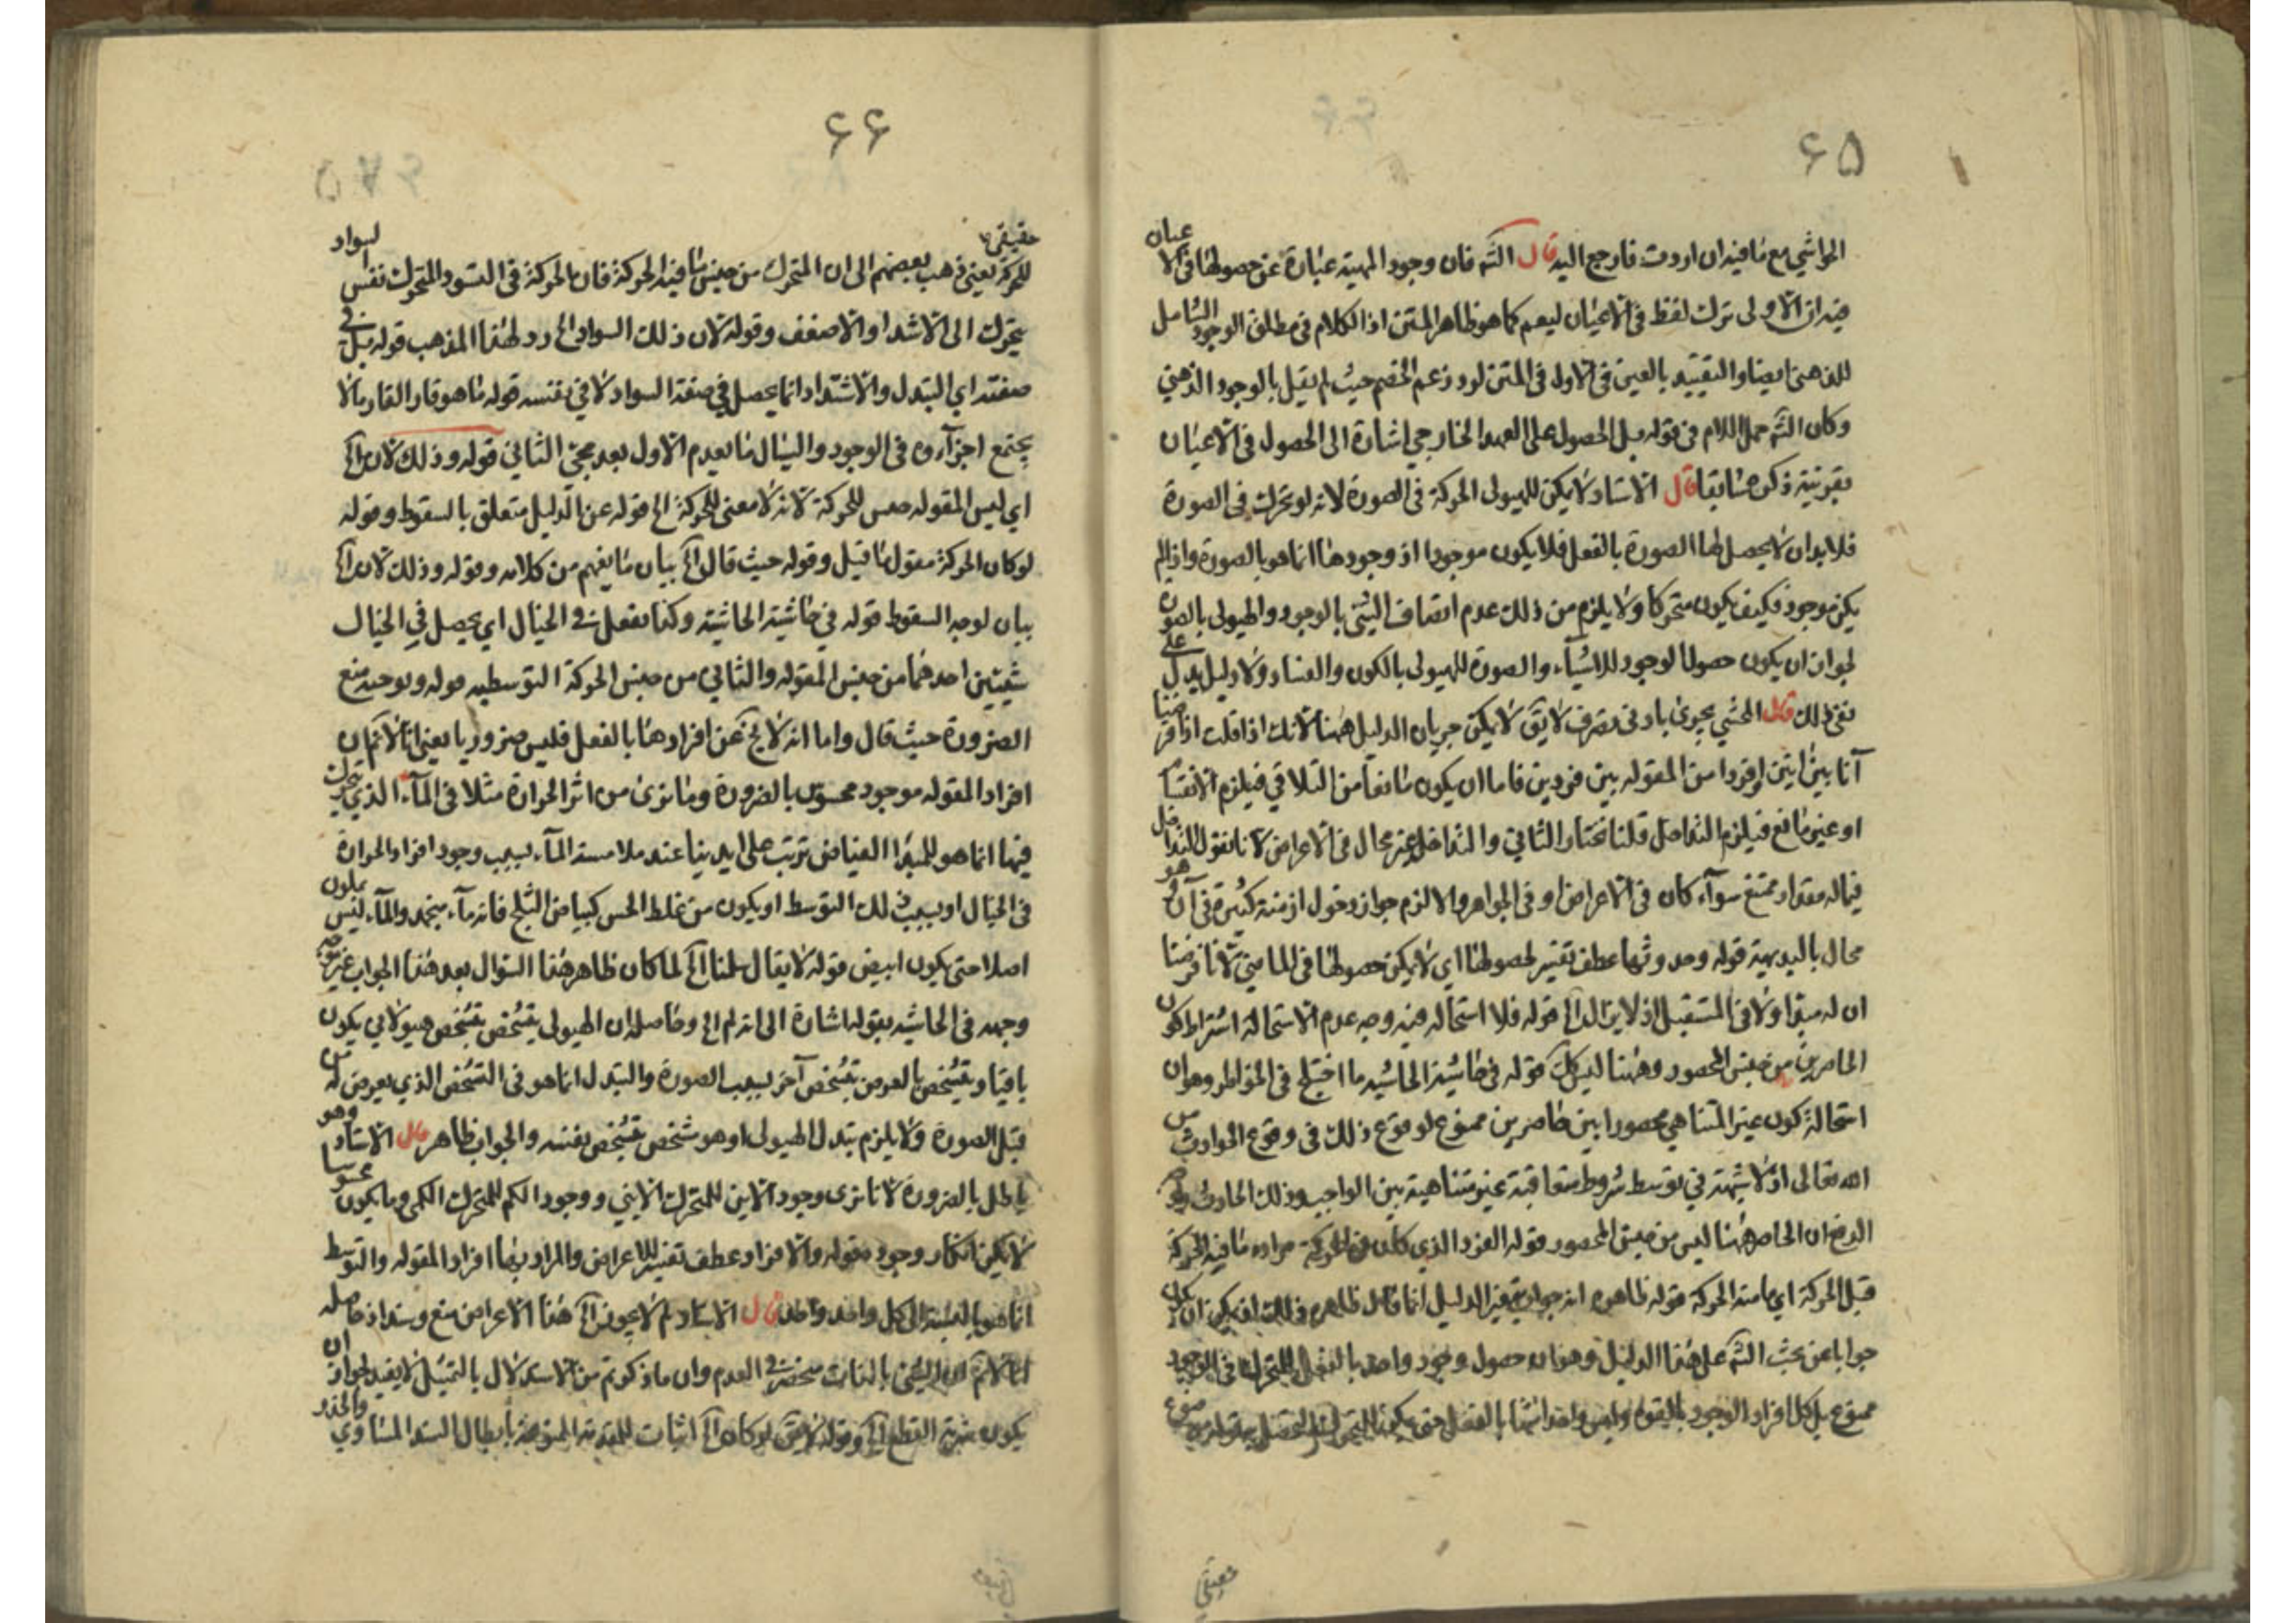 ۶۵
الحواشي مع ما فيه ان اردت فارجع اليه قال الشه فان وجود المهية عبارة عن حصولها في الاعيان
فيه ان الاولى ترك لفظ في الاعيان ليعم كما هو ظاهر المتن اذ الكلام في مطلق الوجود الشامل
للذهني ايضا والتقييد بالعين في الاول في المتن لرد زعم الخصم حيث لم يقل بالوجود الذهني
وكان الشه حمل اللام في قوله بل الحصول على العهد الخارجي اشارة الى الحصول في الاعيان
بقرينة ذكره سابقا قال الاستاد لا يمكن للهيولى الحركة في الصورة لانه لو تحركت في الصورة
فلا بد ان لا يحصل لها الصورة بالفعل فلا يكون موجودا اذ وجودها انما هو بالصورة واذا لم
يكن موجود فكيف يكون متحركا ولا يلزم من ذلك عدم اتصاف الشئ بالوجود والهيولى بالصورة
لجواز ان يكون حصول الوجود للاشياء والصورة للهيولى بالكون والفساد ولا دليل يدل على
نفي ذلك قال المحشي يجري بادنى تصرف لا يق لا يمكن جريان الدليل ههنا لانك اذا قلت اذا فرضنا
آنا بين اثنين او فردا من المقوله بين فردين فاما ان يكون مانعا من التلاقي فيلزم الانقسام
او غير مانع فيلزم التداخل قلنا نختار الثاني والتداخل غير محال في الاعراض لانا نقول التداخل
فيما له مقدار ممتنع سوآء كان في الاعراض او في الجواهر والا لزم جواز دخول ازمنة كثيرة في آن وهو
محال بالبديهية قوله وحدوثها عطف تفسير لحصولها اي لا يمكن حصولها في الماضي لانا فرضنا
ان له مبدا ولا في المستقبل اذ لا يزال الخ قوله فلا استحاله فيه وجه عدم الاستحالة اشتراط كون
الحاصرين من جنس المحصور وههنا ليس كك قوله في حاشية الحاشيه ما اختلج في الخواطر وهو ان
استحالة كون غير المتناهي محصورا بين حاصرين ممنوع لوقوع ذلك في وقوع الحوادث من
الله تعالى اذ لا شبهة في توسط شروط متعاقبة غير متناهية بين الواجب وذلك الحادث
الدفع ان الحاصر ههنا ليس من جنس المحصور قوله الفرد الذي كان فيه الحركة مراده ما فيه الحركة
قبل الحركة اي ما منه الحركة قوله ظاهره انه جواب بتغيير الدليل انما قال ظاهره ذلك اذ يمكن ان يكون
جوابا عن بحث الشه على هذا الدليل وهو ان حصول وجود واحد بالفعل للمتحرك في الوجود
ممنوع بل كل افراد الوجود بالقوة وليس واحد منها بالفعل حتى
حقيقي
۶۶
حقيقي
للحركة يعني ذهب بعضهم الى ان المتحرك من جنس ما فيه الحركة فان الحركة في التسود المتحرك نفس السواد
يتحرك الى الاشد او الاضعف وقوله لان ذلك السواد الخ رد لهذا المذهب قوله بل في
صفته اي التبدل والاشتداد انما يحصل في صفة السواد لا في نفسه قوله ما هو قار القار مالا
يجتمع اجزآره في الوجود والسيال ما يعدم الاول بعد مجئ الثاني قوله وذلك لان الخ
اي ليس المقوله جنس للحركة لانه لا معنى للحركة الخ قوله عن الدليل متعلق بالسقوط وقوله
لو كان الحركة مقول ما قيل وقوله حيث قال الخ بيان ما يفهم من كلامه وقوله وذلك لان الخ
بيان لوجه السقوط قوله في حاشية الحاشية وكذا يفعل في الخيال اي يحصل في الخيال
شيئين احدهما من جنس المقوله والثاني من جنس الحركة التوسطيه قوله وتوجيه منع
الضرورة حيث قال واما انه لا يخ عن افرادها بالفعل فليس ضروريا يعني انا لانم ان
افراد المقوله موجود محسوس بالضرورة وما نرى من اثر الحرارة مثلا في المآء الذي يتحرك
فيها انما هو للمبدا الفياض ترتب على ايدينا عند ملامسة المآء بسبب وجود افراد الحرارة
في الخيال او بسبب ذلك التوسط او يكون من غلط الحس كبياض الثلج فانه مآء منجمد والمآء ليس بملون
اصلا حتى يكون ابيض قوله لا يقال سلمنا الخ لما كان ظاهر هذا السؤال بعد هذا الجواب غير موجه
وجهه في الحاشيه بقوله اشارة الى انه لم الخ وحاصله ان الهيولى يتشخص بتشخص هيولاني يكون
باقيا ويتشخص بالعرض بتشخص آخر بسبب الصورة والتبدل انما هو في التشخص الذي يعرض له من
قبل الصورة ولا يلزم تبدل الهيولى او هو شخص بتشخص بنفسه والجواب ظاهر قال الاستاد وهو
باطل بالضرورة لانا نرى وجود الاين للمتحرك الايني ووجود الكم للمتحرك الكمي وما يكون محسوسا
لا يمكن انكار وجوده قوله والافراد عطف تفسير للاعراض والمراد بها افراد المقوله والتوسط
انما هو بالنسبة الى كل واحد واحد قال الاستاد لم لا يجوز الخ هذا الاعراض منع وسند اذ حاصله
انا لانم ان الشئ بالذات منحصر في العدم وان ما ذكرتم من الاستدلال بالتمثيل لا يفيد لجواز ان
يكون القطع الخ وقوله لا يق لو كان الخ اثبات للمقدمة الممنوعة بابطال السند المساوي